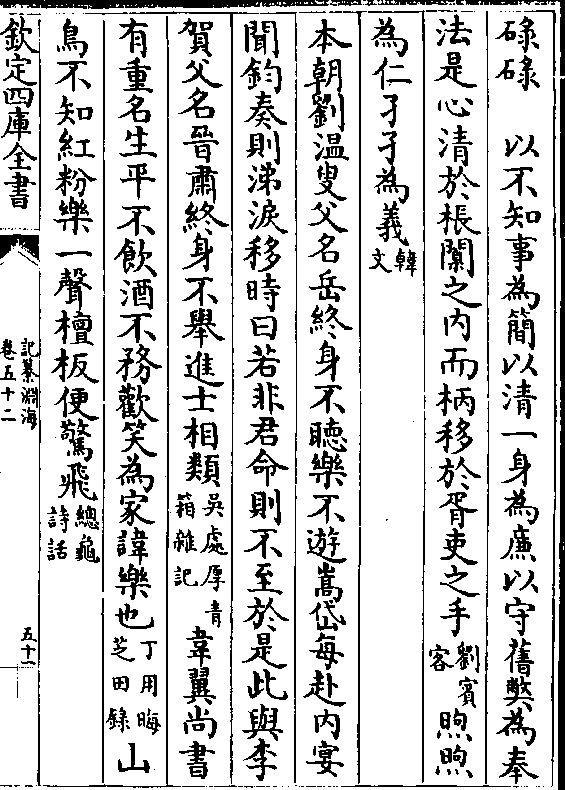 碌碌　以不知事為簡以清一身為廉以守舊弊為奉
法是心清於棖闑之内而柄移於胥吏之手劉賓客煦煦
為仁孑孑為義韓文
本朝劉温叟父名岳終身不聽樂不遊嵩岱每赴内宴
聞鈞奏則涕淚移時曰若非君命則不至於是此與李
賀父名晉肅終身不舉進士相類吳處厚青箱雜記韋翼尚書
有重名生平不飲酒不務歡笑為家諱樂也丁用晦芝田錄山
鳥不知紅粉樂一聲檀板便驚飛總龜詩話
欽定四庫全書
記纂淵海
卷五十二
五十一